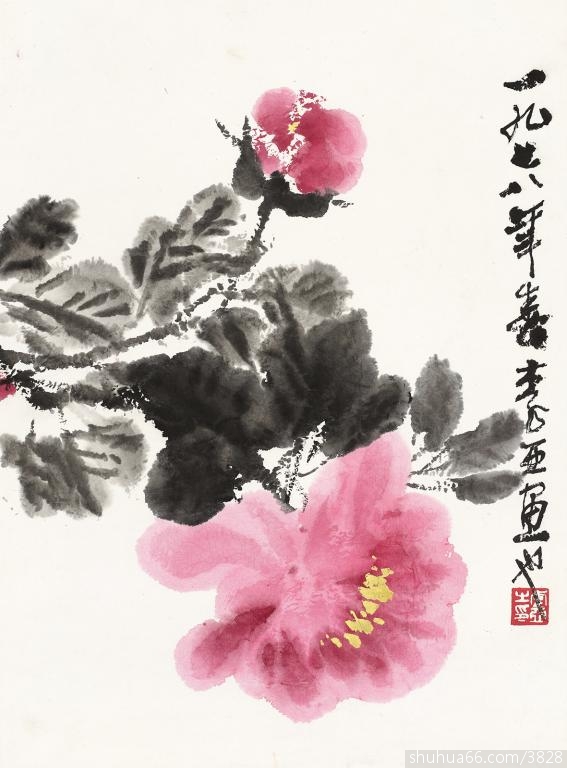 一九七八年春李亚画也
shuhua66.com/3828